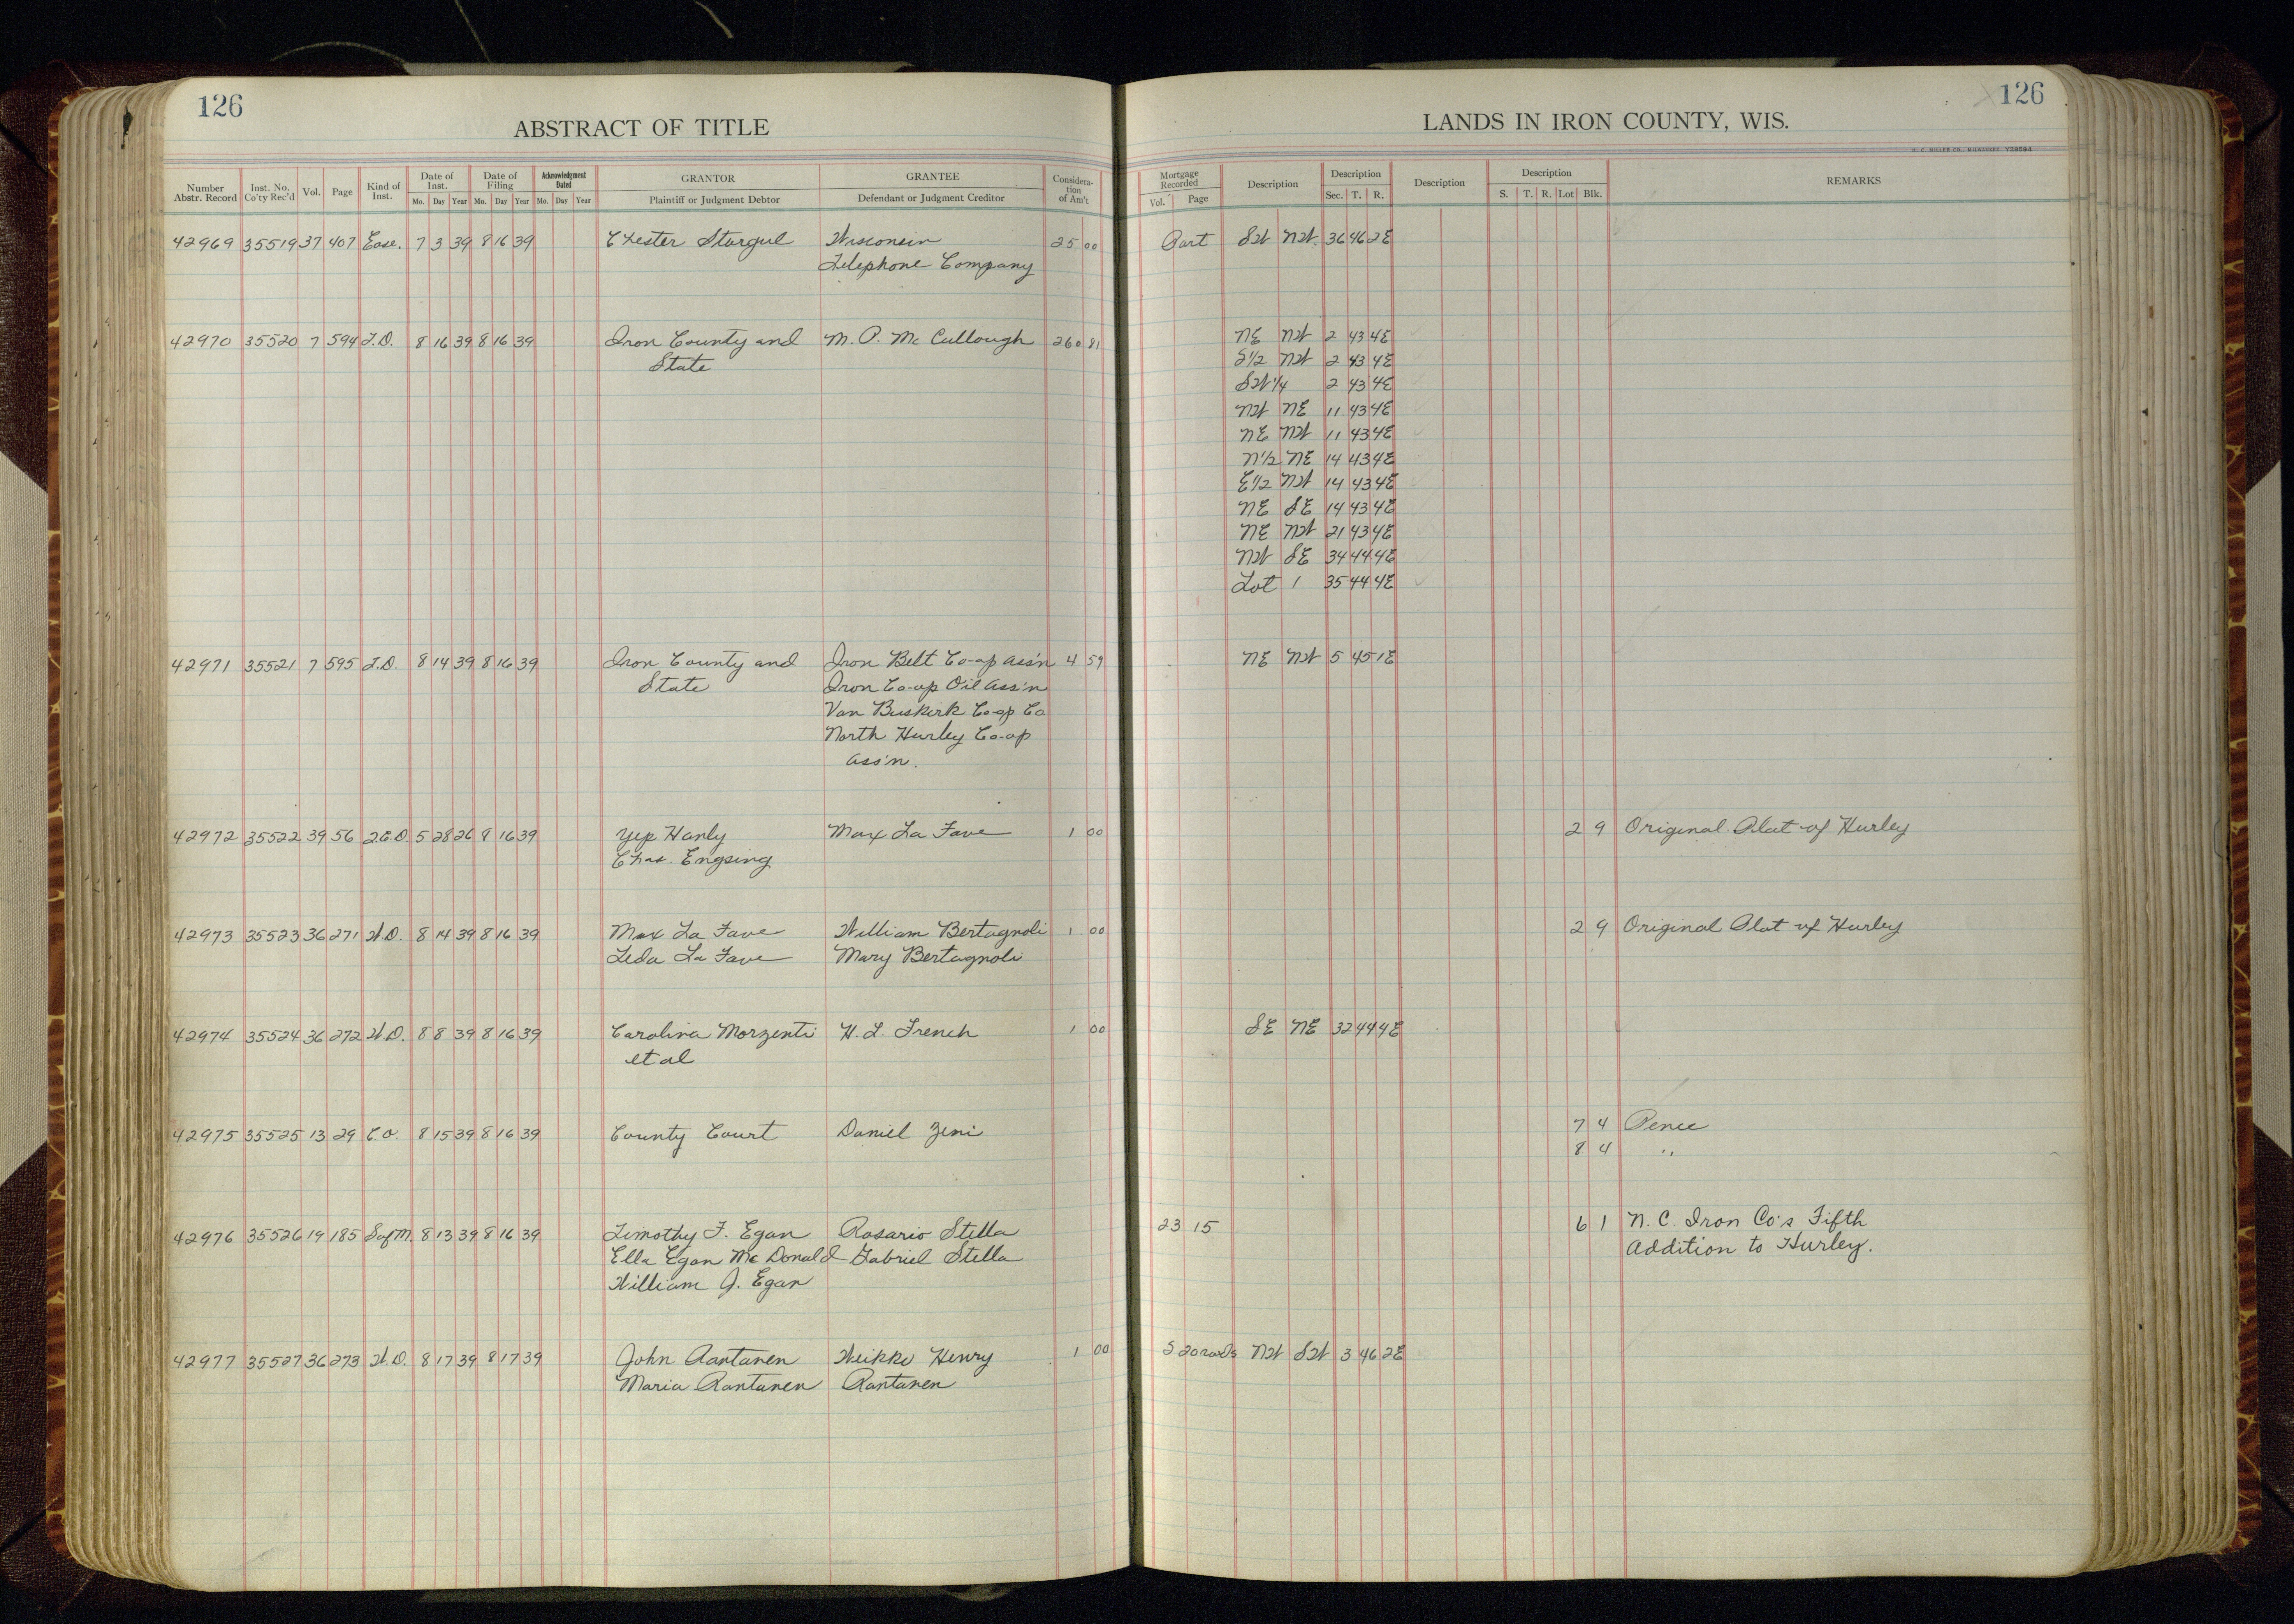 126
ABSTRACT OF TITLE
Number Abstr. Record Inst. No. Co'ty Rec'd Vol. Page Kind of Inst. Date of Inst. Mo. Day Year Date of Filing Mo. Day Year Acknowledgment Dated Mo. Day Year GRANTOR Plaintiff or Judgment Debtor GRANTEE Defendant or Judgment Creditor Consideration of Am't
42969 35519 37 407 Ease. 7 3 39 8 16 39 Chester Sturgul Wisconsin 25 00
Telephone Company
42970 35520 7 594 T.D. 8 16 39 8 16 39 Iron County and M. P. Mc Cullough 260 81
State
42971 35521 7 595 T.D. 8 14 39 8 16 39 Iron County and Iron Belt Co-op Ass'n 4 59
State Iron Co-op Oil Ass'n
Van Buskirk Co-op Co
North Hurley Co-op
Ass'n.
42972 35522 39 56 Q.C.D. 5 28 26 8 16 39 Yep Hanly Max La Fave 1 00
Chas. Engsing
42973 35523 36 271 W.D. 8 14 39 8 16 39 Max La Fave William Bertagnoli 1 00
Leda La Fave Mary Bertagnoli
42974 35524 36 272 W.D. 8 8 39 8 16 39 Carolina Morzenti H. L. French 1 00
et al
42975 35525 13 29 C.O. 8 15 39 8 16 39 County Court Daniel Zeni
42976 35526 19 185 S of M. 8 13 39 8 16 39 Timothy F. Egan Rosario Stella
Ella Egan Mc Donald Gabriel Stella
William J. Egan
42977 35527 36 273 W.D. 8 17 39 8 17 39 John Rantanen Weikko Henry 1 00
Maria Rantanen Rantanen
126
LANDS IN IRON COUNTY, WIS.
H. C. MILLER CO., MILWAUKEE
Mortgage Recorded Vol. Page Description Description Sec. T. R. Description Description S. T. R. Lot Blk. REMARKS
Part SW NW 36 46 2E
NE NW 2 43 4E
S1/2 NW 2 43 4E
SW1/4 2 43 4E
NW NE 11 43 4E
NE NW 11 43 4E
N1/2 NE 14 43 4E
E1/2 NW 14 43 4E
NE SE 14 43 4E
NE NW 21 43 4E
NW SE 34 44 4E
Lot 1 35 44 4E
NE NW 5 45 1E
2 9 Original Plat of Hurley
2 9 Original Plat of Hurley
SE NE 32 44 4E
7 4 Pence
8 4 "
23 15 6 1 N. C. Iron Co's Fifth
Addition to Hurley.
S 20 rods NW SW 3 46 2E